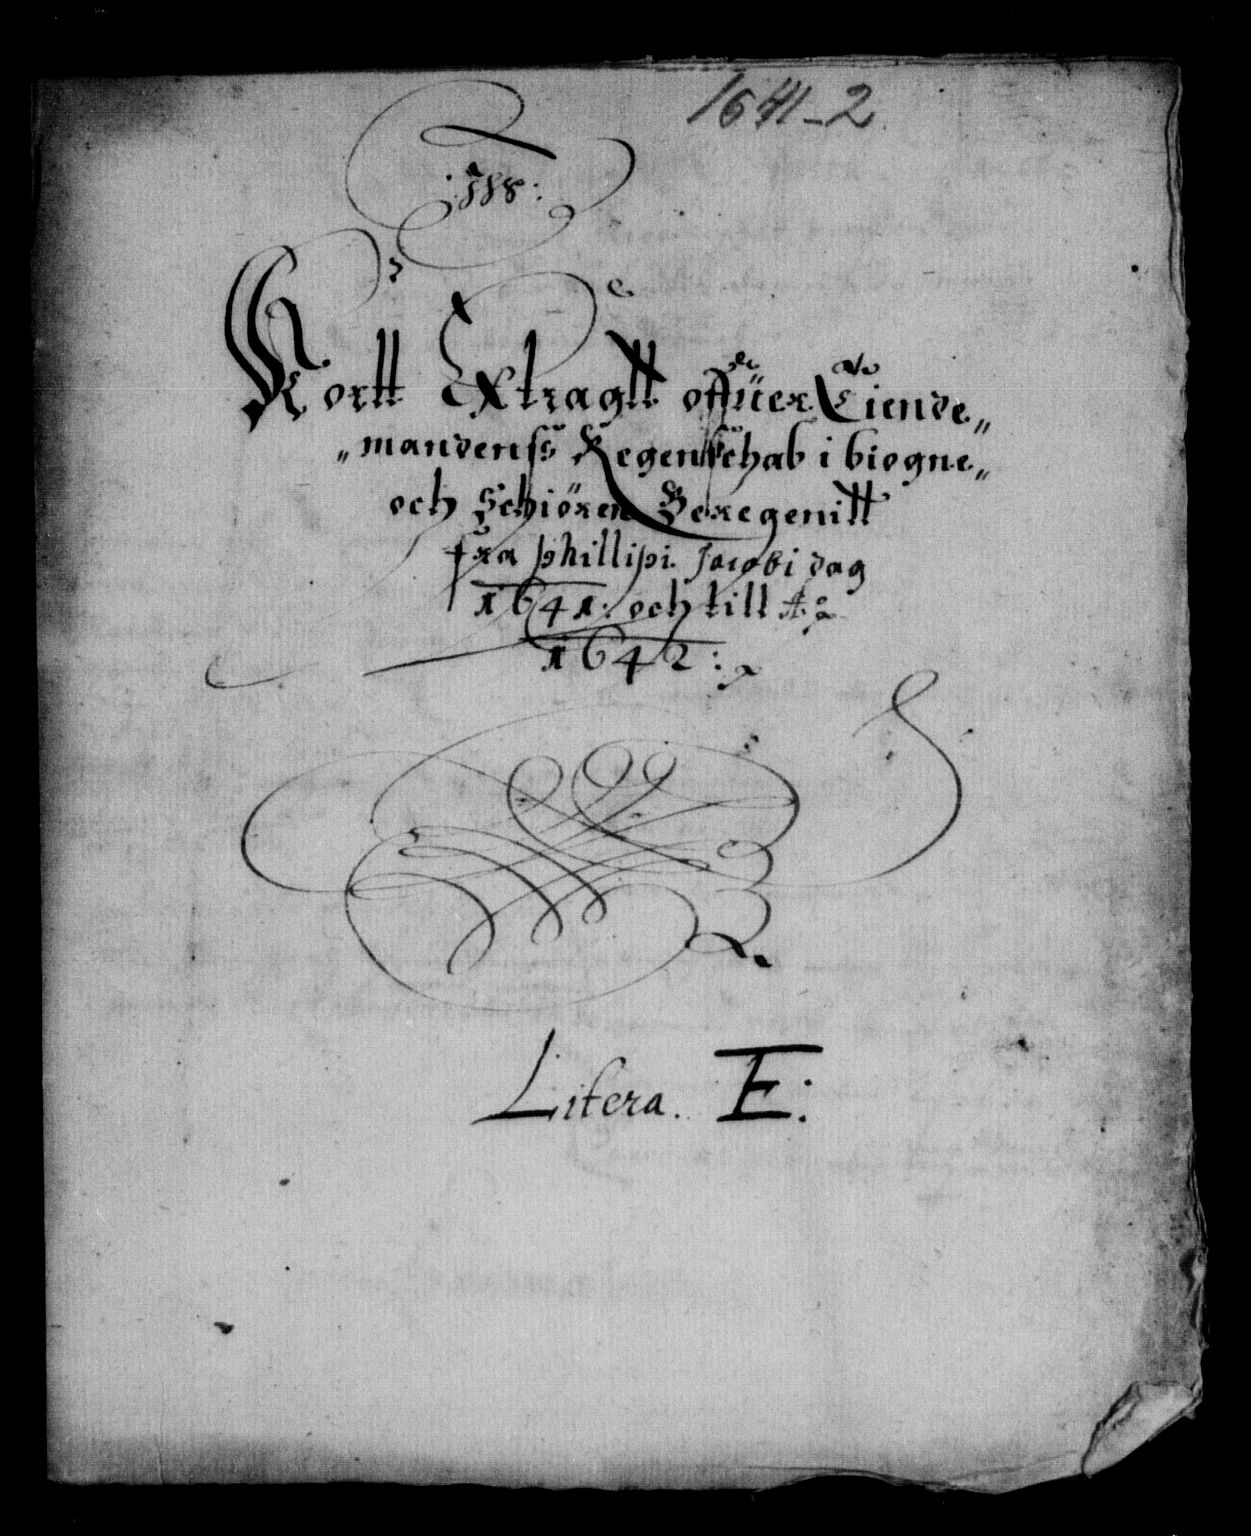 1641-2
Kortt Extragtt offuer Tiende„
„mandenss Regenschab i biogne„
och Schiören Beregenitt
fra phillipi Jacobi dag
1641: och till A:o
1642:
Litera. E: